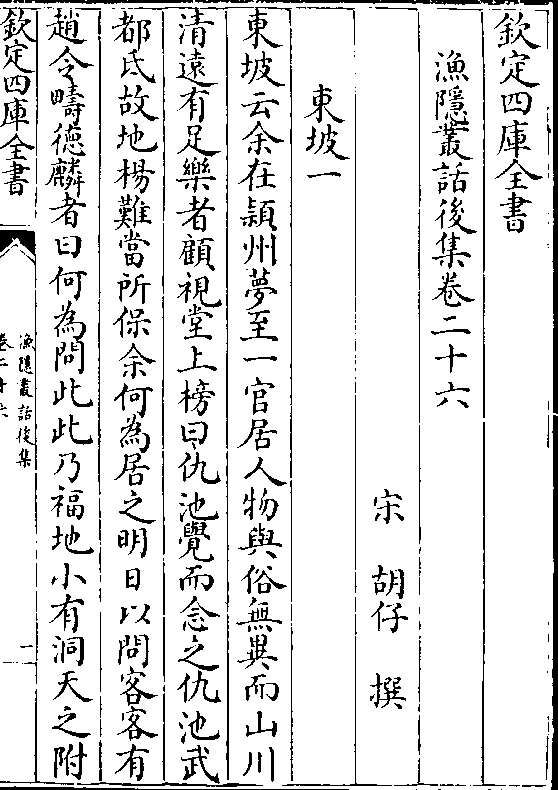 欽定四庫全書
漁隱叢話後集卷二十六
宋 胡仔 撰
東坡一
東坡云余在潁州夢至一官居人物與俗無異而山川
清遠有足樂者顧視堂上榜曰仇池覺而念之仇池武
都氐故地楊難當所保余何為居之明日以問客客有
趙令畤德麟者曰何為問此此乃福地小有洞天之附
欽定四庫全書
漁隱叢話後集
卷二十六
一